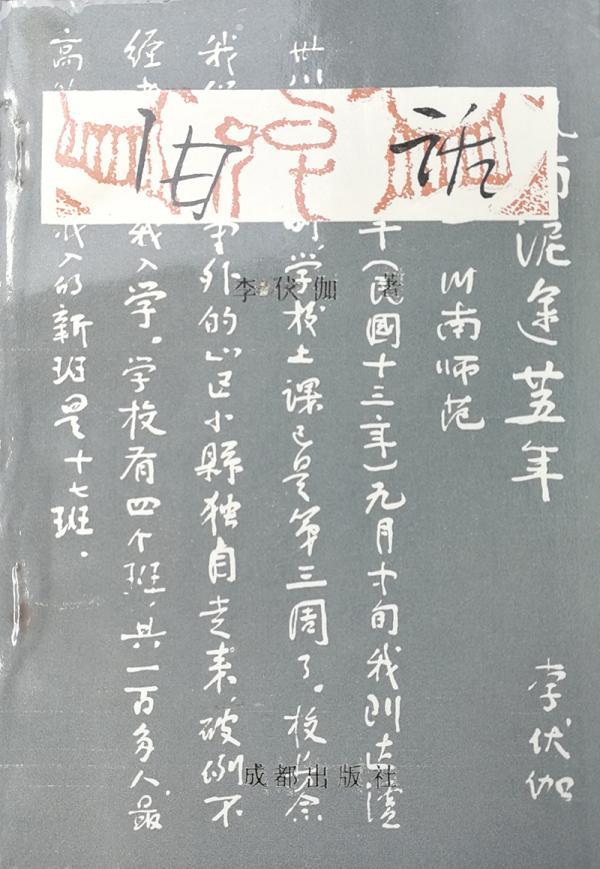 旧话
李伏伽 著
成都出版社
师泥途年
李伏伽
川南师范
年(民國十三年)九月中旬我到达
世川时,学校上课已是第三周了。校
我外的山区小縣独自走来,破例不
经我入学。学校有四个班,共一百多人。最
高我入的新班是十七班。